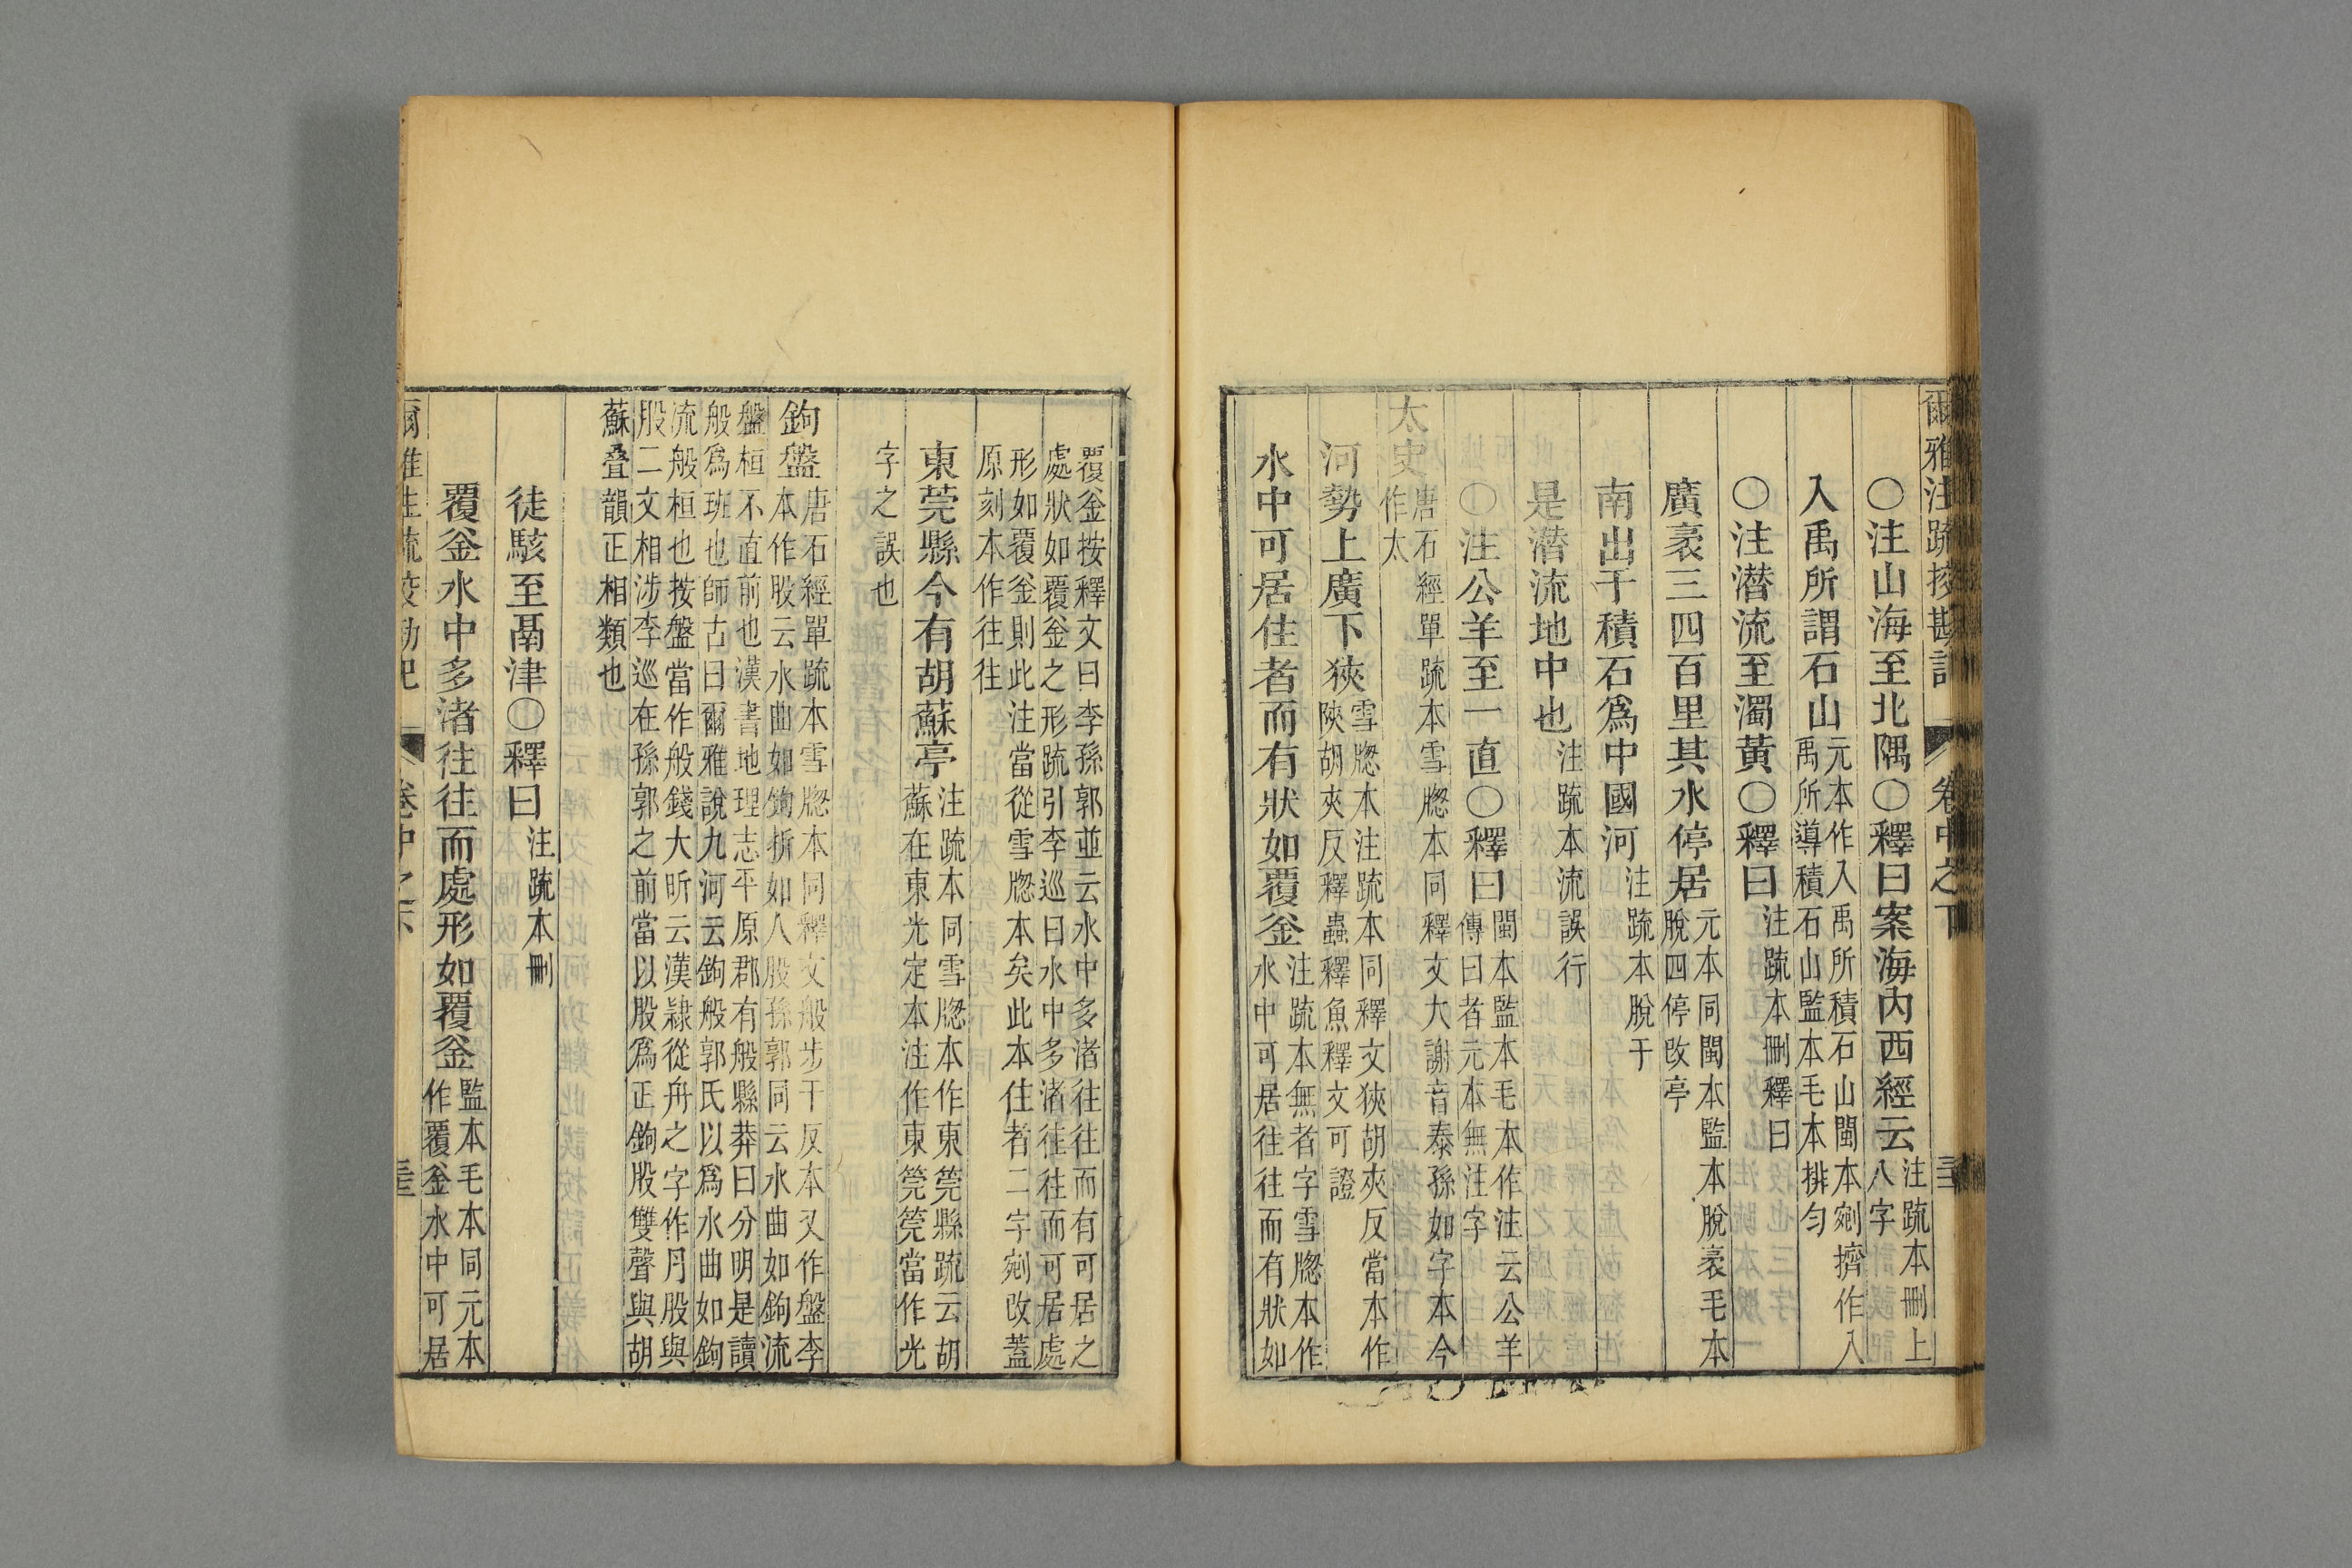 爾雅注疏挍勘記 卷中之下
〇注山海至北隅〇釋曰案海内西經云注疏本刪上
八字
入禹所謂石山元本作入禹所積石山閩本剜擠作入
禹所導積石山監本毛本排勻
〇注潜流至濁黃〇釋曰注疏本刪釋曰
廣袤三四百里其水停居元本同閩本監本脫袤毛本
脫四停改亭
南出于積石爲中國河注疏本脫于
是潜流地中也注疏本流誤行
〇注公羊至一直〇釋曰閩本監本毛本作注云公羊
傳曰者元本無注字
太史唐石經單疏本雪牎本同釋文大謝音泰孫如字本今
作太
河勢上廣下狹雪牎本注疏本同釋文狹胡夾反當本作
陜胡夾反釋蟲釋魚釋文可證
水中可居住者而有狀如覆釡注疏本無者字雪牎本作
水中可居往往而有狀如
覆釡按釋文曰李孫郭並云水中多渚往往而有可居之
處狀如覆釡之形疏引李巡曰水中多渚往往而可居處
形如覆釡則此注當從雪牎本矣此本住者二字剜改蓋
原刻本作往往
東莞縣今有胡蘇亭注疏本同雪牎本作東筦縣疏云胡
蘇在東光定本注作東筦筦當作光
字之誤也
鉤盤唐石經單疏本雪牎本同釋文般步干反本又作盤李
本作股云水曲如鉤折如人股孫郭同云水曲如鉤流
盤桓不直前也漢書地理志平原郡有般縣莽曰分明是讀
般爲班也師古曰爾雅說九河云鉤般郭氏以爲水曲如鉤
流般桓也按盤當作般錢大昕云漢隷從舟之字作月股與
股二文相涉李巡在孫郭之前當以股爲正鉤股雙聲與胡
蘇叠韻正相類也
徒駭至鬲津〇釋曰注疏本刪
覆釡水中多渚往往而處形如覆釡監本毛本同元本
作覆釡水中可居
爾雅注疏挍勘記 卷中之下